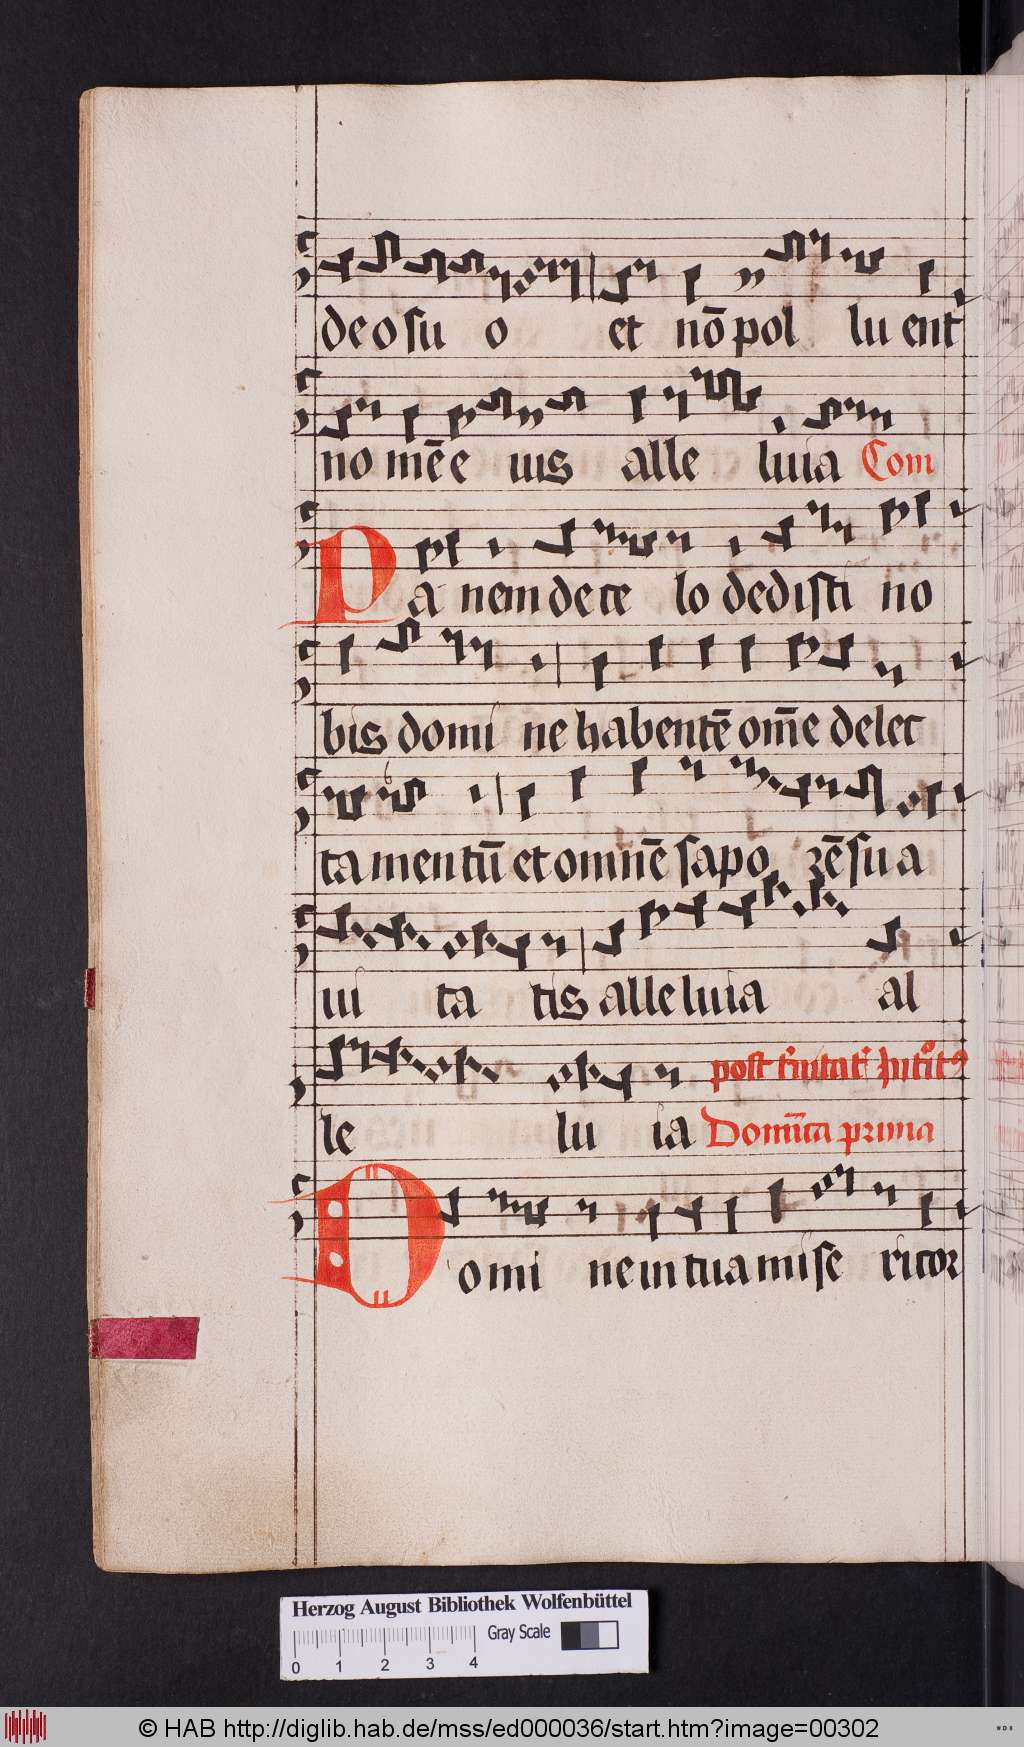 deo su o et nō pol lu ent
no mē e ius alle luia Com
Pa nem de ce lo dedisti no
bis domi ne habentē om̄e delec
ta mentū et omnē sapo rē su a
ui ta tis alleluia al
post t'nitat'
le lu ia Domīca prima
Domi ne in tua mise ricor
Herzog August Bibliothek Wolfenbüttel
Gray Scale
0 1 2 3 4
© HAB http://diglib.hab.de/mss/ed000036/start.htm?image=00302